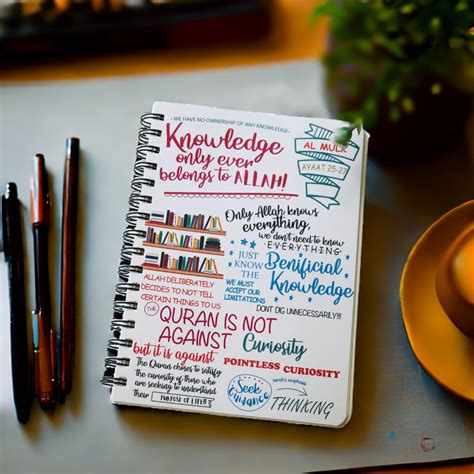 WE HAVE NO OWNERSHIP OF ANY KNOWLEDGE
Knowledge
only ever
belongs to ALLAH!
AL MULK
AYAAT 25-27
Only Allah knows
everything,
we don't need to know
EVERYTHING
JUST
KNOW
THE
Benificial
Knowledge
WE MUST
ACCEPT OUR
LIMITATIONS
DON'T DIG UNNECESSARILY!!!
ALLAH DELIBERATELY
DECIDES TO NOT TELL
CERTAIN THINGS TO US
THE
QURAN IS NOT
AGAINST
Curiosity
but it is against
POINTLESS CURIOSITY
The Quran choses to satisfy
the curiosity of those who
are seeking to understand
their
PURPOSE OF LIFE!!!
Seek
Guidance
THINKING